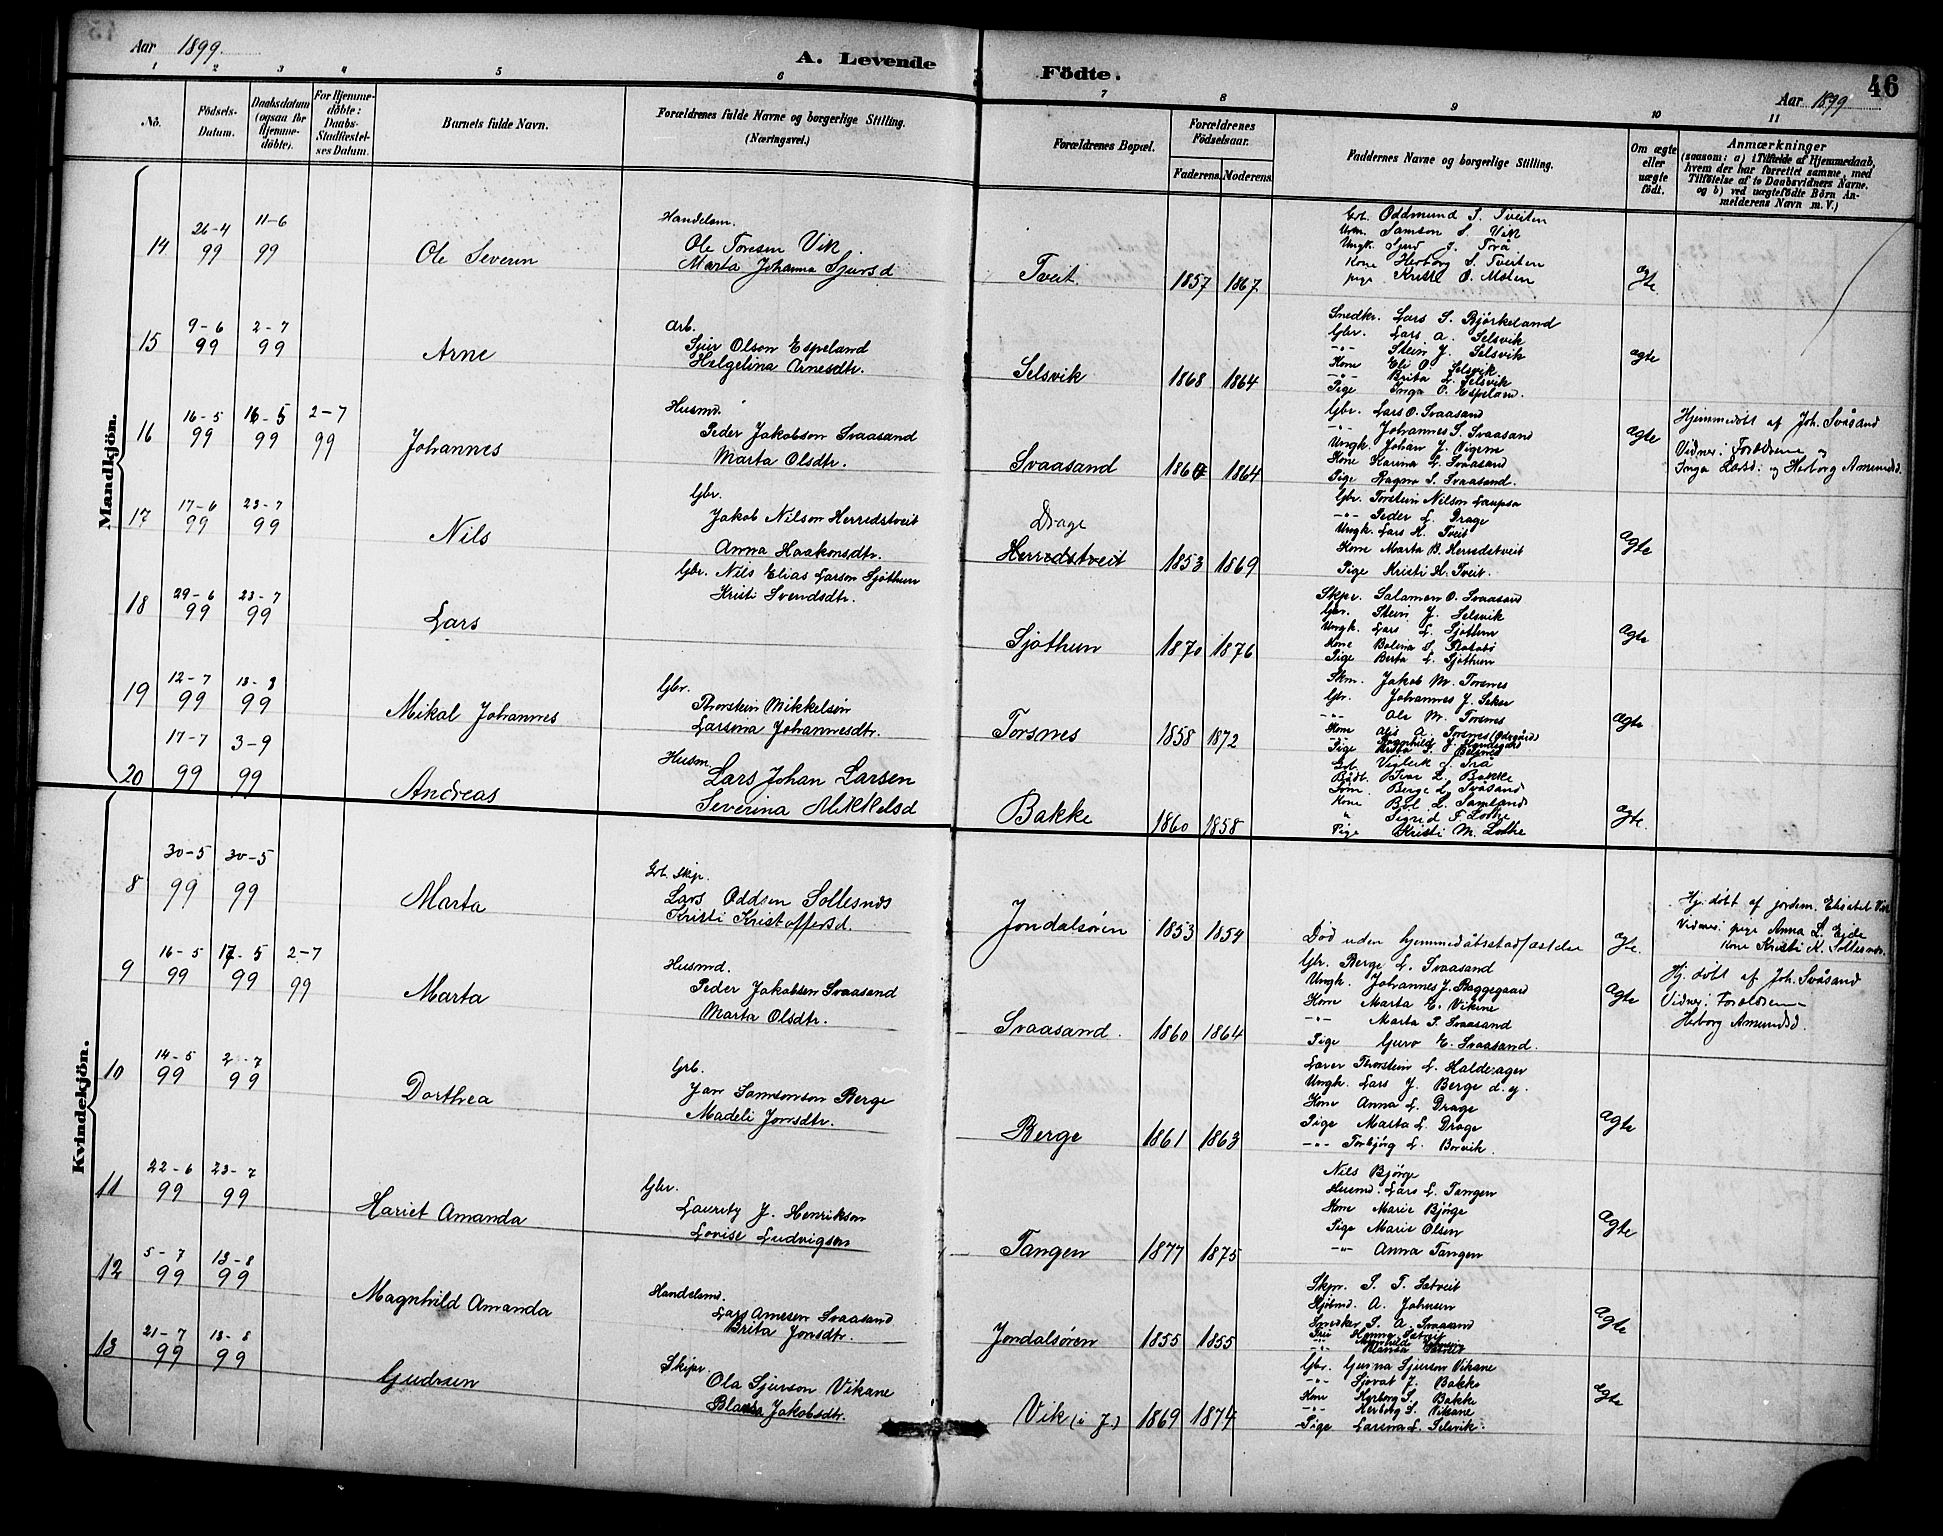 Aar 1899.
A. Levende Födte.
46
Aar 1899
1 2 3 4 5 6 7 8 9 10 11
No.
Födsels-Datum.
Daabsdatum (ogsaa for Hjemme-döbte).
For Hjemme-döbte: Daabs-Stadfæstel-ses Datum.
Barnets fulde Navn.
Forældrenes fulde Navne og borgerlige Stilling.
(Næringsvei.)
Forældrenes Bopæl.
Forældrenes Födselsaar.
Faderens. Moderens.
Faddernes Navne og borgerlige Stilling.
Om ægte eller uægte födt.
Anmærkninger
(saasom: a) i Tilfælde af Hjemmedaab, hvem der har forrettet samme, med Tilföielse af to Daabsvidners Navne. og b) ved uægtefödte Börn An-melderens Navn m. V.)
Mandkjön.
14 26-4 99 11-6 99 Ole Severin
Handelsm.
Ole Toresen Vik
Marta Johanna Sjursd
Tveit 1857 1867
Grb. Oddmund S. Tveiten
Ugm. Samson S. Vik
Ungk. Sjur J. Trå
Kone Herborg S. Tveiten
pige Kristi O. Molen
ægte.
15 9-6 99 2-7 99 Arne
Arb.
Sjur Olson Espeland
Helgelina Arnesdtr.
Selsvik 1868 1864
Snedkr. Lars S. Björkeland
Gbr. Lars A. Selsvik
-"- Stein J. Selsvik
Kone Eli O. Selsvik
-"- Brita L. Selsvik
Pige Inga O. Espeland.
ægte
16 16-5 99 16-5 99 2-7 99 Johannes
Husmd.
Peder Jakobson Svaasand
Marta Olsdtr.
Svaasand 1860 1864
Gbr. Lars O. Svaasand
-"- Johannes S. Svaasand
Ungk. Johan J. Vigene
Kone Karina L. Svaasand
Pige Ragna S. Svaasand.
ægte
Hjemmedöbt af Joh. Svåsand
Vidner: Forældrene og
Inga Larsd. og Herborg Amundsd.
17 17-6 99 23-7 99 Nils
Gbr.
Jakob Nilson Herredstveit
Anna Haakonsdtr.
Drage
Herredstveit 1853 1869
Gbr. Torstein Nilson Laupsa
-"- Peder L. Drage
Ungk. Lars H. Tveit
Kone Marta B. Herredstveit
Pige Kristi H. Tveit.
ægte
18 29-6 99 23-7 99 Lars
Gbr. Nils Elias Larson Sjöthun
Kristi Svendsdtr.
Sjöthun 1870 1876
Skpr. Salamon O. Svaasand
Gbr. Stein J. Selsvik
Ungk. Lars L. Sjöthun
Kone Bolina S.
Pige Berta L. Sjöthun
ægte
19 12-7 99 13-8 99 Mikal Johannes
Gbr.
Thorstein Mikkelsen
Larsina Johannesdtr.
Torsnes 1858 1872
Skm. Jakob M. Torsnes
Gbr. Johannes J. Sekse
-"- Ole M. Torsnes
Kone A. Torsnes
-"- Ragnhild J.
Pige
ægte
20 17-7 99 3-9 99 Andreas
Husm.
Lars Johan Larsen
Severina Mikkelsd
Bakke 1860 1858
Grb. Viglik J. Trå
Bådb. Iver L. Bakke
Berge L. Svåsand
Kone Bol. L. Samland
" Sigrid F. Lothe
Pige Kristi M. Lothe
ægte.
Kvindekjön.
8 30-5 99 30-5 99 Marta
Grb. Skpr.
Lars Oddsen Sollesnes
Kristi Kristoffersd.
Jondalsören 1853 1854
Död uden hjemmedåbsstadfæstelse
ægte.
Hj. döbt af jordem. Elisabet Vik
Vidner: pige Anna L. Eide
Kone Kristi K. Sollesnes.
9 16-5 99 17-5 99 2-7 99 Marta
Husmd.
Peder Jakobsen Svaasand
Marta Olsdtr.
Svaasand. 1860 1864
Gbr. Berge L. Svaasand
Ungk. Johannes J. Baggegaard
Kone Marta E. Vikene
-"- Marta S. Svaasand
Pige Guro E. Svaasand.
ægte
Hj. döbt af Joh. Svåsand
Vidner: Forældrene
Herborg Amundsd.
10 14-5 99 2-7 99 Dorthea
Grb.
Jan Samsonson Berge
Madeli Jonsdtr.
Berge 1861 1863
Lærer Thorstein L. Haldesager
Ungk. Lars J. Berge d.y.
Kone Anna L. Drage
Pige Marta L. Drage
-"- Torbjörg L. Borvik.
ægte
11 22-6 99 23-7 99 Hariet Amanda
Gbr.
Lauritz J. Henrikson
Lovise Ludvigsen
Tangen 1877 1875
Nils Bjørge
Husmd. Lars L. Tangen
Kone Marie Bjørge
Pige Marie Olsen
-"- Anna Tangen
ægte
12 5-7 99 13-8 99 Magnhild Amanda
Handelsmd.
Lars Arnesen Svaasand
Brita Jonsdtr.
Jondalsören 1855 1855
Skpr. S. T. Sætveit
Kjöbmd. A. Johnsen
Snedker S. A. Svaasand
ægte
13 21-7 99 13-8 99 Gudrun
Skipr.
Ola Sjurson Vikane
Jakobsdtr.
Vik (i J.) 1869 1874
Gbr. Sjurson Vikane
-"- Sjovat J. Bakke
Kone Herborg S. Bakke
-"- Herborg S. Vikane
Pige Larsina L. Selsvik.
ægte